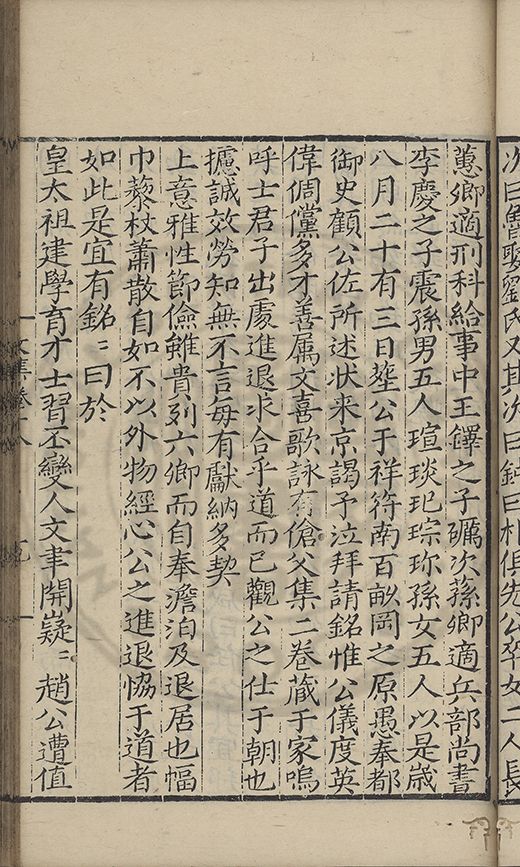 蕙卿適刑科給事中王鐸之子礪次蓀卿適兵部尚書
李慶之子震孫男五人瑄琰玘琮珎孫女五人以是歲
八月二十有三日塟公于祥符南百畝岡之原愚奉都
御史顧公佐所述状来京謁予泣拜請銘惟公儀度英
偉倜儻多才善屬文喜歌詠有傖父集二卷蔵于家嗚
呼士君子出處進退求合乎道而已觀公之仕于朝也
攄誠效勞知無不言每有獻納多契
上意雅性節儉雖貴列六卿而自奉澹泊及退居也幅
巾藜杖蕭散自如不以外物經心公之進退恊于道者
如此是宜有銘〻曰於
皇太祖建學育才士習丕變人文聿開嶷〻趙公遭值